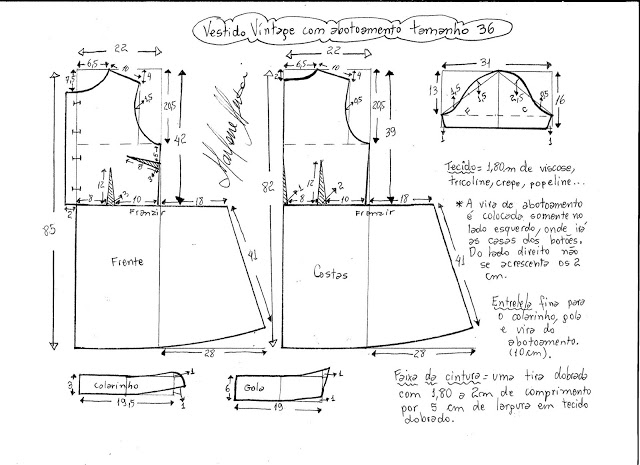 Vestido Vintage com abotoamento tamanho 36
22
6,5
4
7,5
1,5
20,5
42
12
8
10
18
2
Franzir
85
Frente
41
28
22
6,5
4
2
1,5
20,5
39
12
1
2
8
10
18
Franzir
82
Costas
41
28
31
13
16
1,5
2,5
F
C
1
1
Tecido = 1,80 m de viscose,
tricoline, crepe, popeline...
* A vira de abotoamento
é colocada somente no
lado esquerdo, onde irá
as casas dos botões.
Do lado direito não
se acrescenta os 2
cm.
Entretela fina para
o colarinho, gola
e vira do
abotoamento.
(10 cm).
Faixa da cintura = uma tira dobrada
com 1,80 a 2m de comprimento
por 5 cm de largura em tecido
dobrado.
3
Colarinho
1
1
19,5
6
Gola
1
1
19